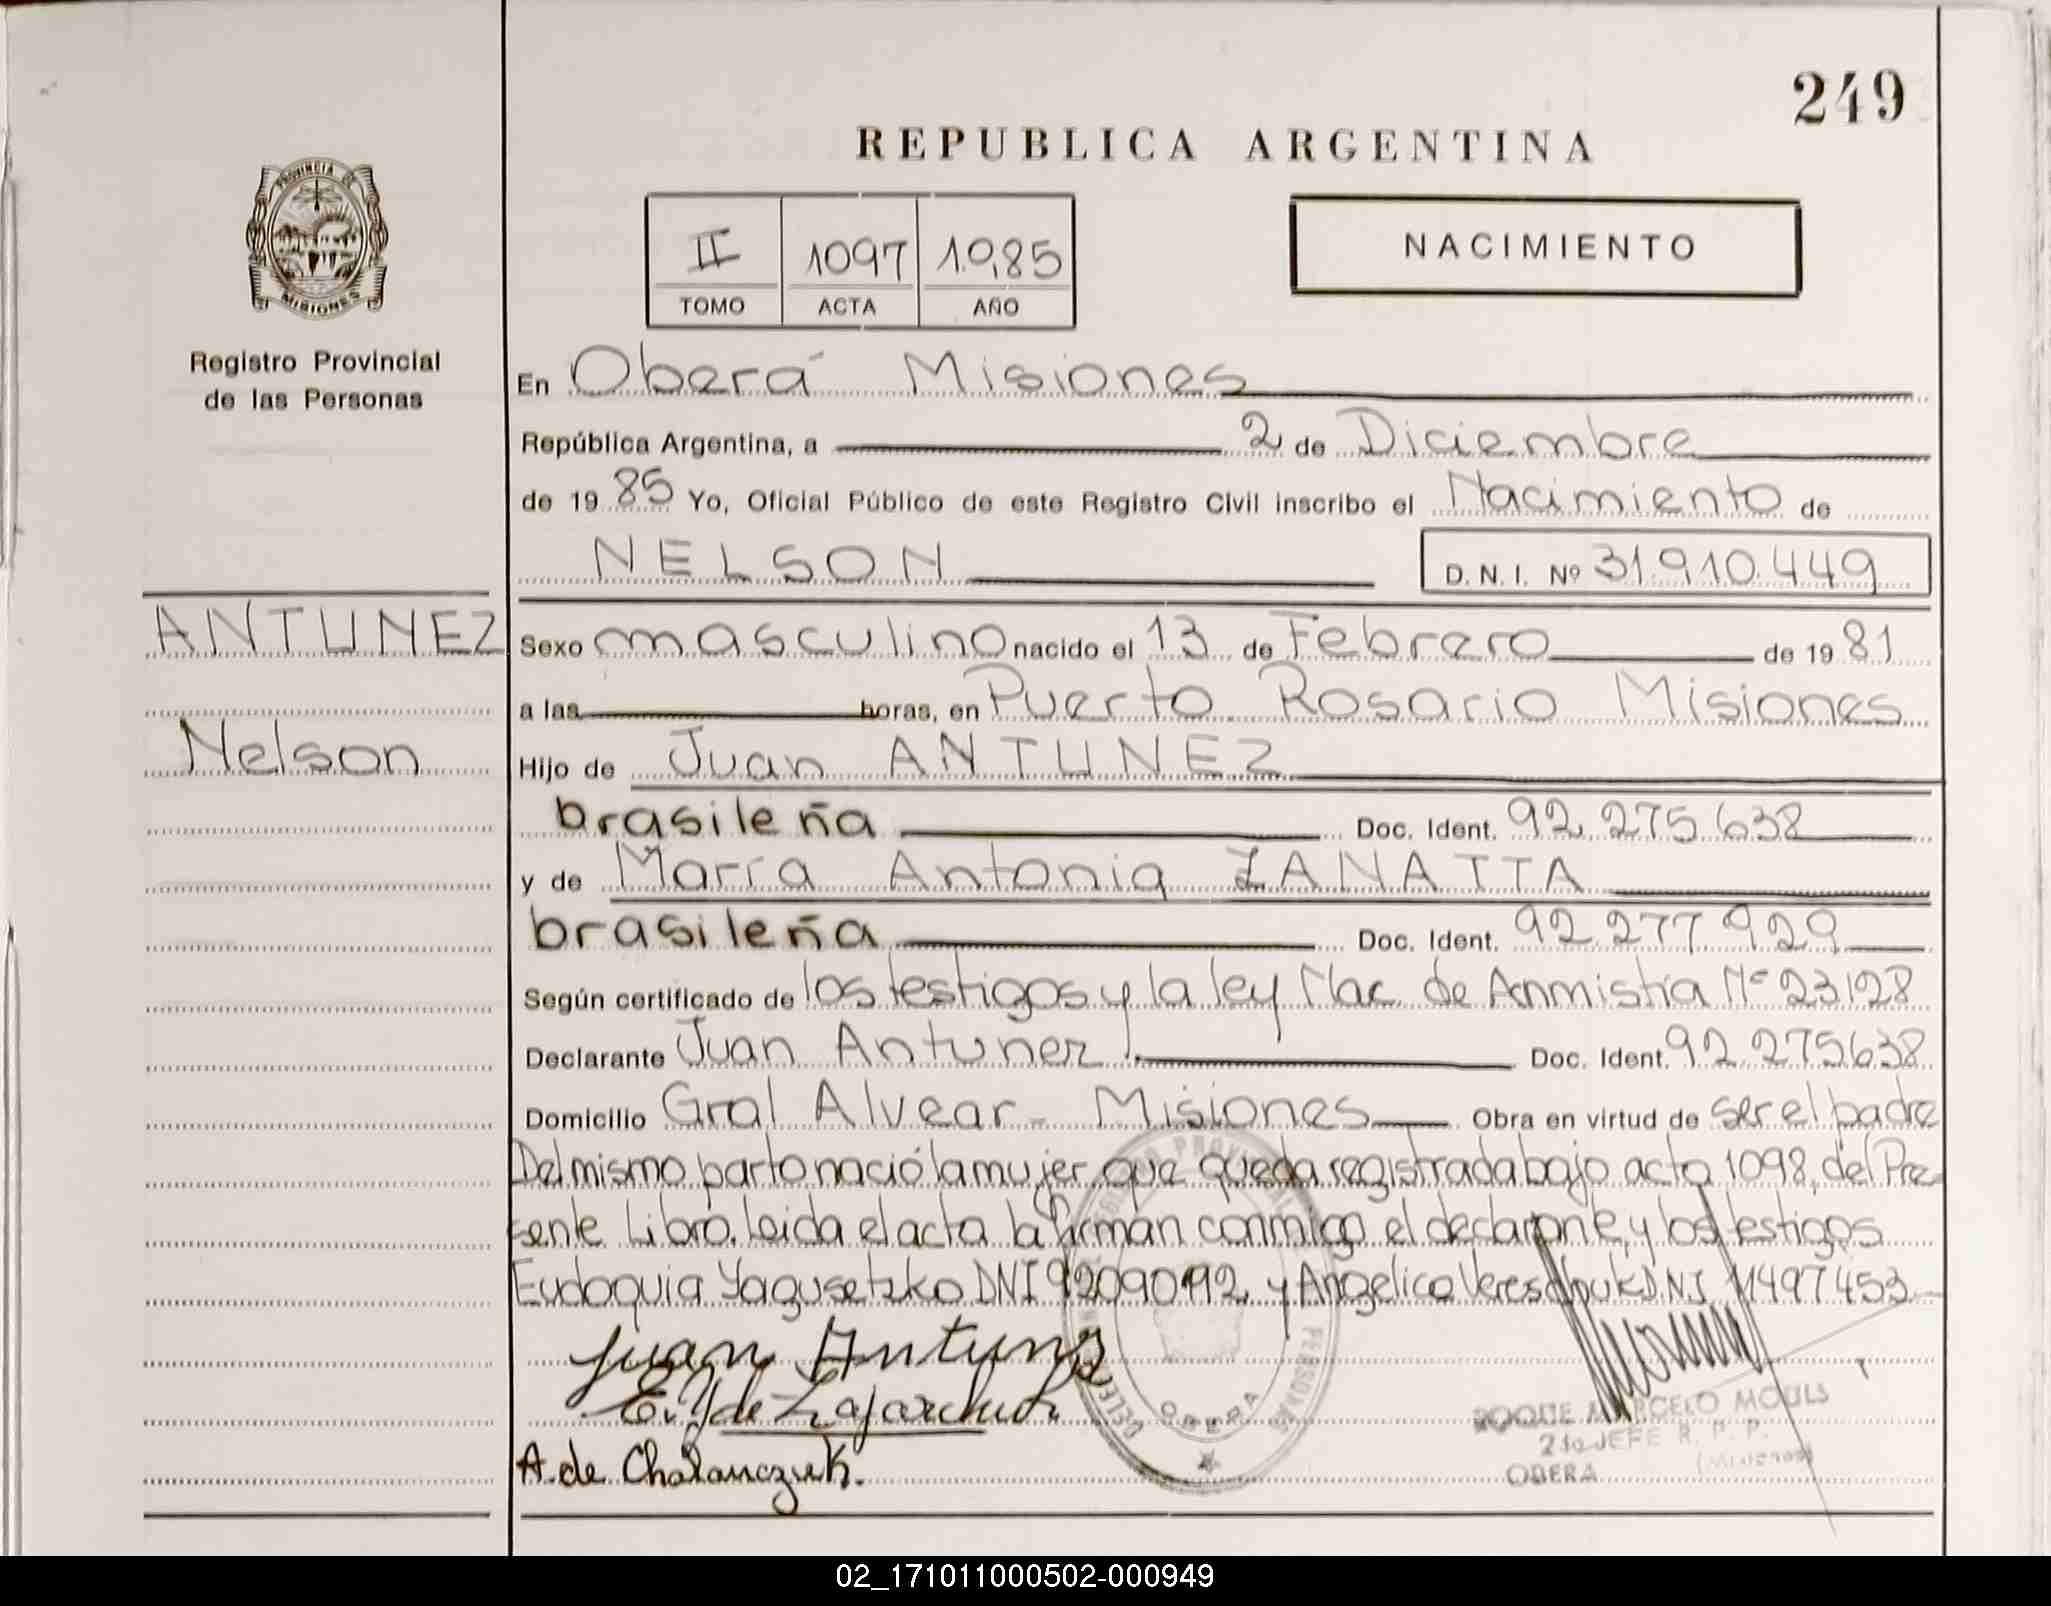 249
REPUBLICA ARGENTINA
PROVINCIA DE
MISIONES
Registro Provincial
de las Personas
II 1097 1985
TOMO ACTA AÑO
NACIMIENTO
En Oberá Misiones
República Argentina, a 2 de Diciembre
de 1985 Yo, Oficial Público de este Registro Civil inscribo el Nacimiento de
NELSON D.N.I. Nº 31.910.449
ANTUNEZ
Nelson
Sexo masculino nacido el 13 de Febrero de 1981
a las horas, en Puerto Rosario Misiones
Hijo de Juan ANTUNEZ
brasileña Doc. Ident. 92.275.638
y de María Antonia ZANATTA
brasileña Doc. Ident. 92.277.929
Según certificado de los testigos y la ley Nac. de Anmistia Nº 23128
Declarante Juan Antunez Doc. Ident. 92.275.638
Domicilio Gral Alvear - Misiones Obra en virtud de ser el padre
Del mismo parto nació la mujer que queda registrada bajo acta 1098, del Pre-
sente Libro. Leida el acta la firman conmigo el declarante, y los testigos
Eudoquia Yagusetzko DNI y Angelica DNI 11497453
Juan Antunz
E. Y de
A. de
ROQUE MARCELO MOULS
2do JEFE R. P. P.
OBERA (Misiones)
OBERA
02_171011000502-000949